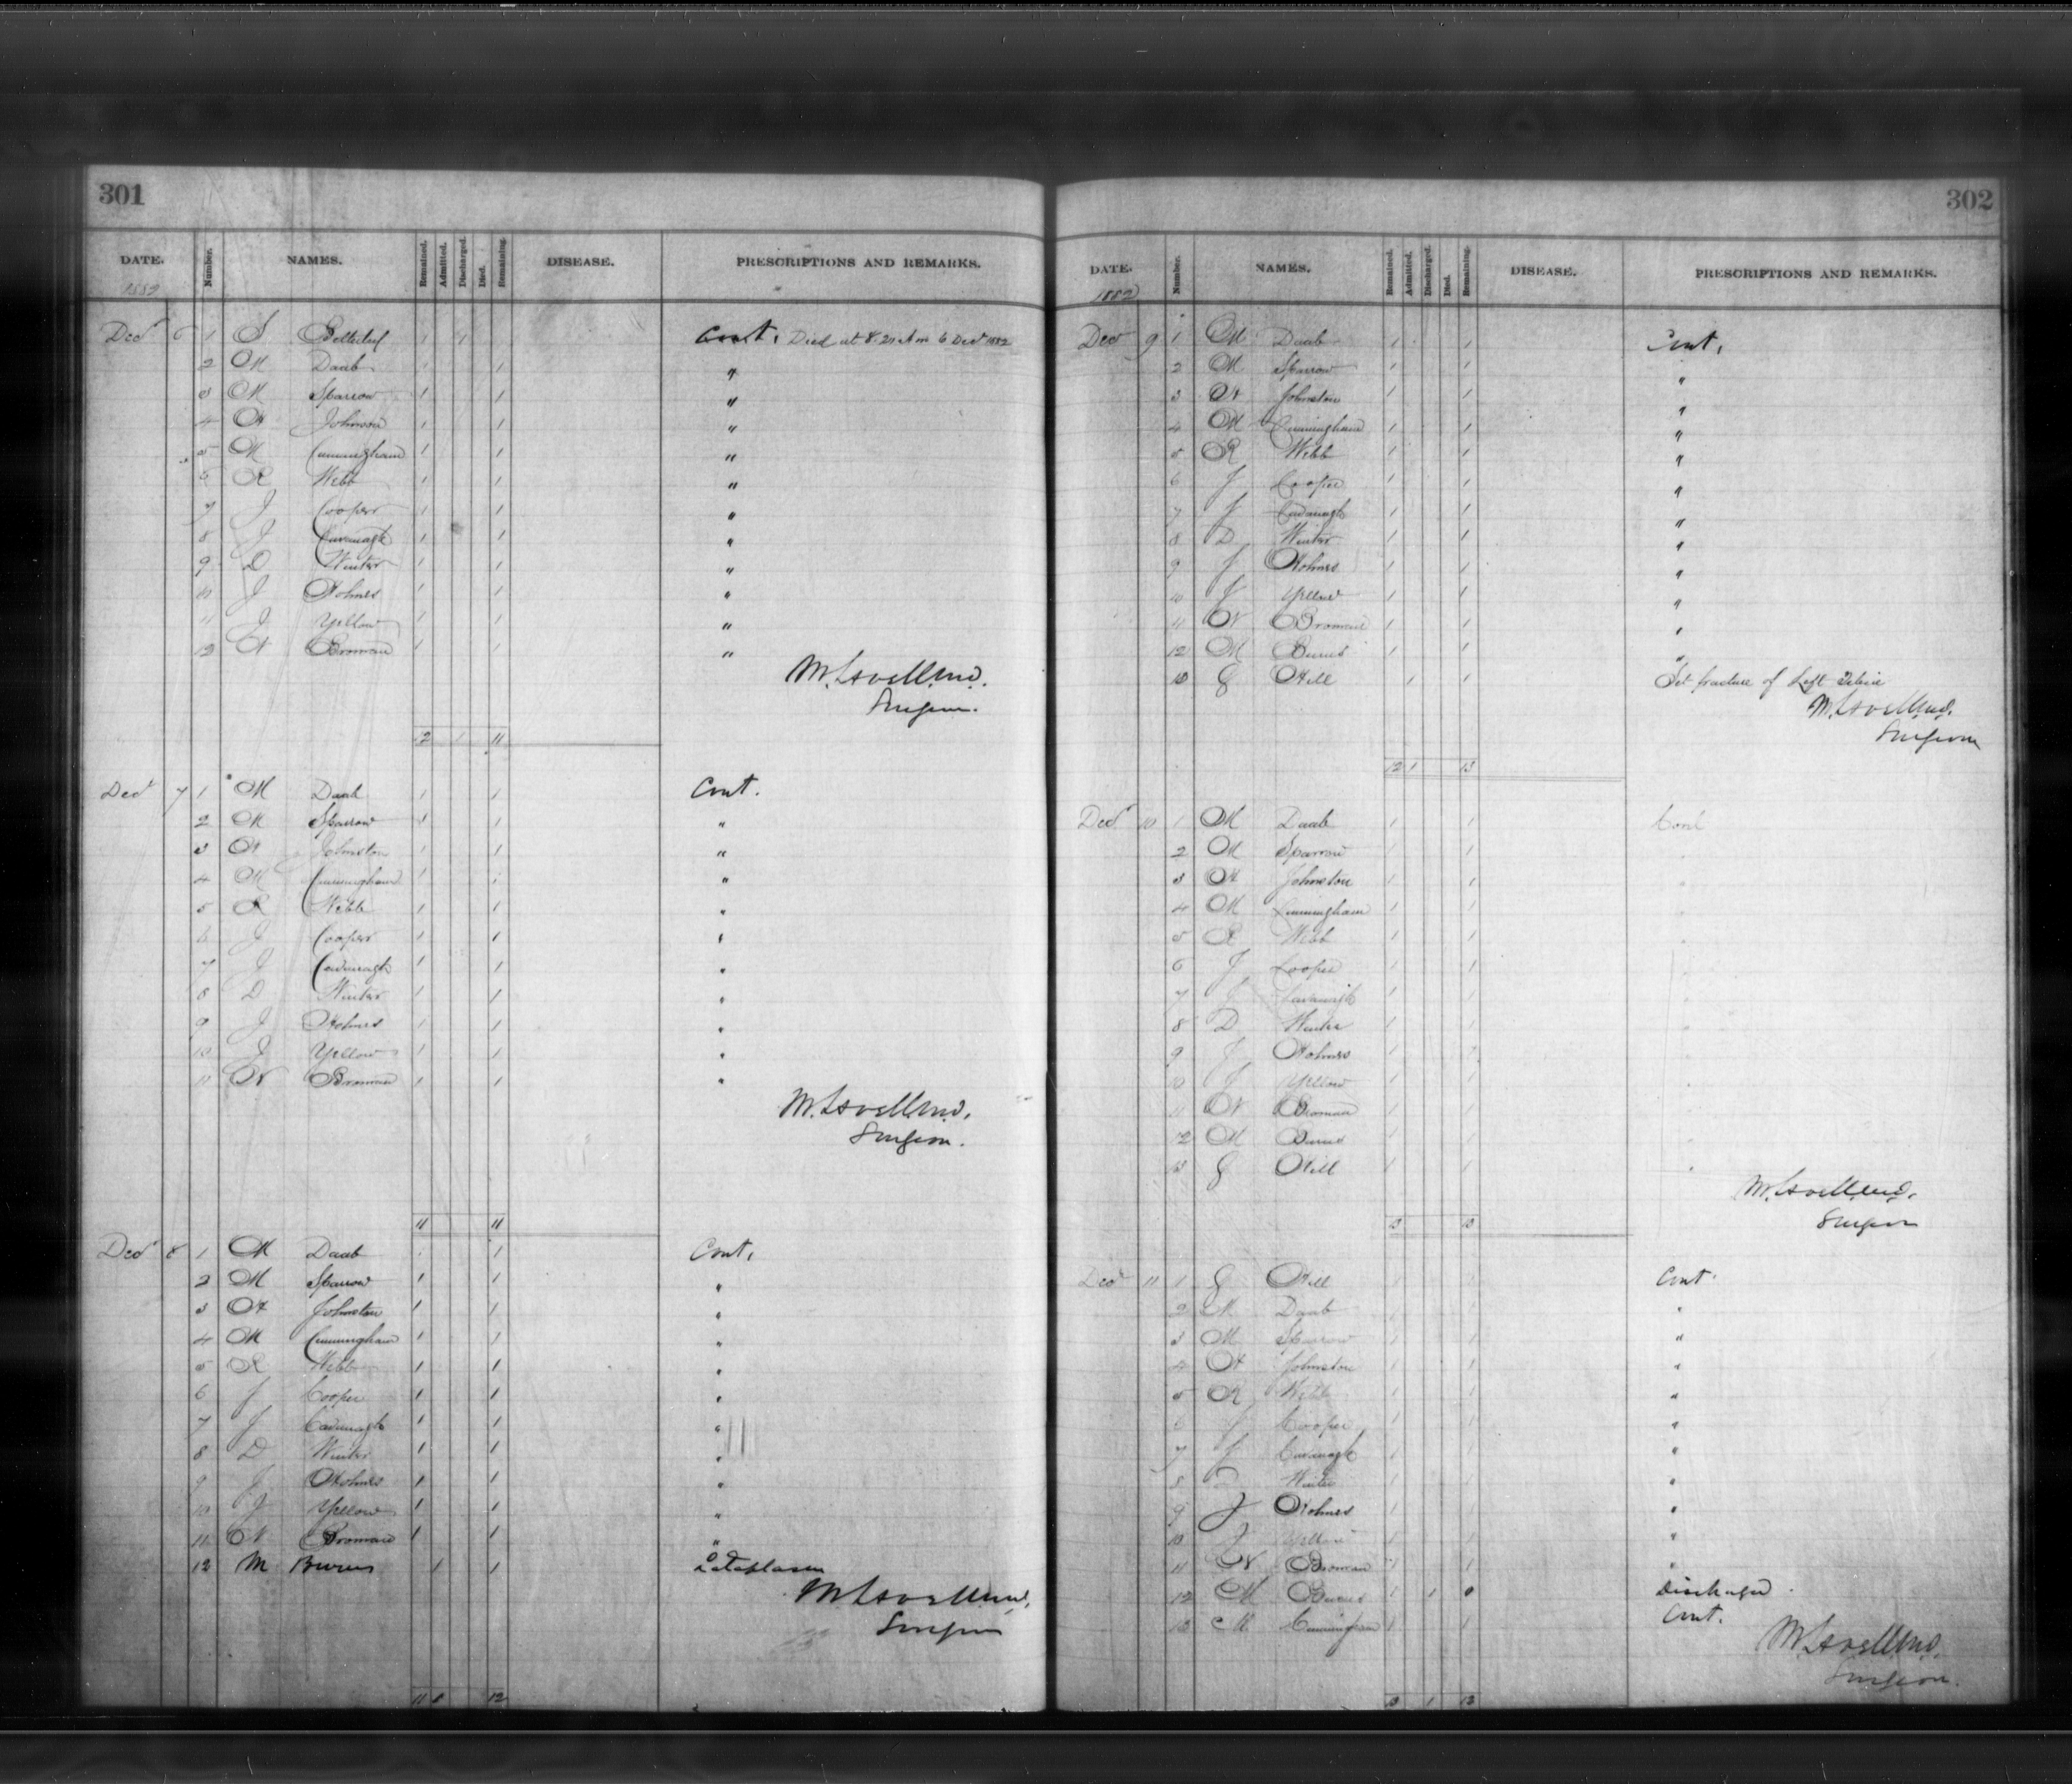 301
DATE. Number. NAMES. Remained. Admitted. Discharged. Died. Remaining. DISEASE. PRESCRIPTIONS AND REMARKS.
1882
Decr 6 1 S 1 1 Cont. Died at 8.21 Am 6 Decr 1882
2 M Daab 1 1 "
3 M Sparrow 1 1 "
4 H Johnson 1 1 "
5 M Cunningham 1 1 "
6 R Webb 1 1 "
7 J Cooper 1 1 "
8 J Cavanagh 1 1 "
9 D Winter 1 1 "
10 J Holmes 1 1 "
11 J Yellow 1 1 "
12 N Broman 1 1 "
Surgeon.
12 1 11
Decr 7 1 M Daab 1 1 Cont.
2 M Sparrow 1 1 "
3 H Johnston 1 1 "
4 M Cunningham 1 1 "
5 R Webb 1 1 "
6 J Cooper 1 1 "
7 J Cavanagh 1 1 "
8 D Winter 1 1 "
9 J Holmes 1 1 "
10 J Yellow 1 1 "
11 N Broman 1 1 "
Surgeon.
11 11
Decr 8 1 M Daab 1 1 Cont.
2 M Sparrow 1 1 "
3 H Johnston 1 1 "
4 M Cunningham 1 1 "
5 R Webb 1 1 "
6 J Cooper 1 1 "
7 J Cavanagh 1 1 "
8 D Winter 1 1 "
9 J Holmes 1 1 "
10 J Yellow 1 1 "
11 N Broman 1 1 "
12 M Burns 1 1 Cataplasm
Surgeon
11 1 12
302
DATE. Number. NAMES. Remained. Admitted. Discharged. Died. Remaining. DISEASE. PRESCRIPTIONS AND REMARKS.
1882
Decr 9 1 M Daab 1 1 Cont.
2 M Sparrow 1 1 "
3 H Johnston 1 1 "
4 M Cunningham 1 1 "
5 R Webb 1 1 "
6 J Cooper 1 1 "
7 J Cavanagh 1 1 "
8 D Winter 1 1 "
9 J Holmes 1 1 "
10 J Yellow 1 1 "
11 N Broman 1 1 "
12 M Burns 1 1 "
13 G Hill 1 1 Set fracture of Left Tibia
Surgeon
12 1 13
Decr 10 1 M Daab 1 1 Cont
2 M Sparrow 1 1
3 H Johnston 1 1
4 M Cunningham 1 1
5 R Webb 1 1
6 J Cooper 1 1
7 J Cavanagh 1 1
8 D Winter 1 1
9 J Holmes 1 1
10 J Yellow 1 1
11 N Broman 1 1
12 M Burns 1 1
13 G Hill 1 1
Surgeon
13 13
Decr 11 1 G Hill 1 1 Cont.
2 M Daab 1 1 "
3 M Sparrow 1 1 "
4 H Johnston 1 1 "
5 R Webb 1 1 "
6 J Cooper 1 1 "
7 J Cavanagh 1 1 "
8 D Winter 1 1 "
9 J Holmes 1 1 "
10 J Yellow 1 1 "
11 N Broman 1 1 "
12 M Burns 1 1 0 Discharged
13 M Cunningham 1 1 Cont.
Surgeon.
13 1 12